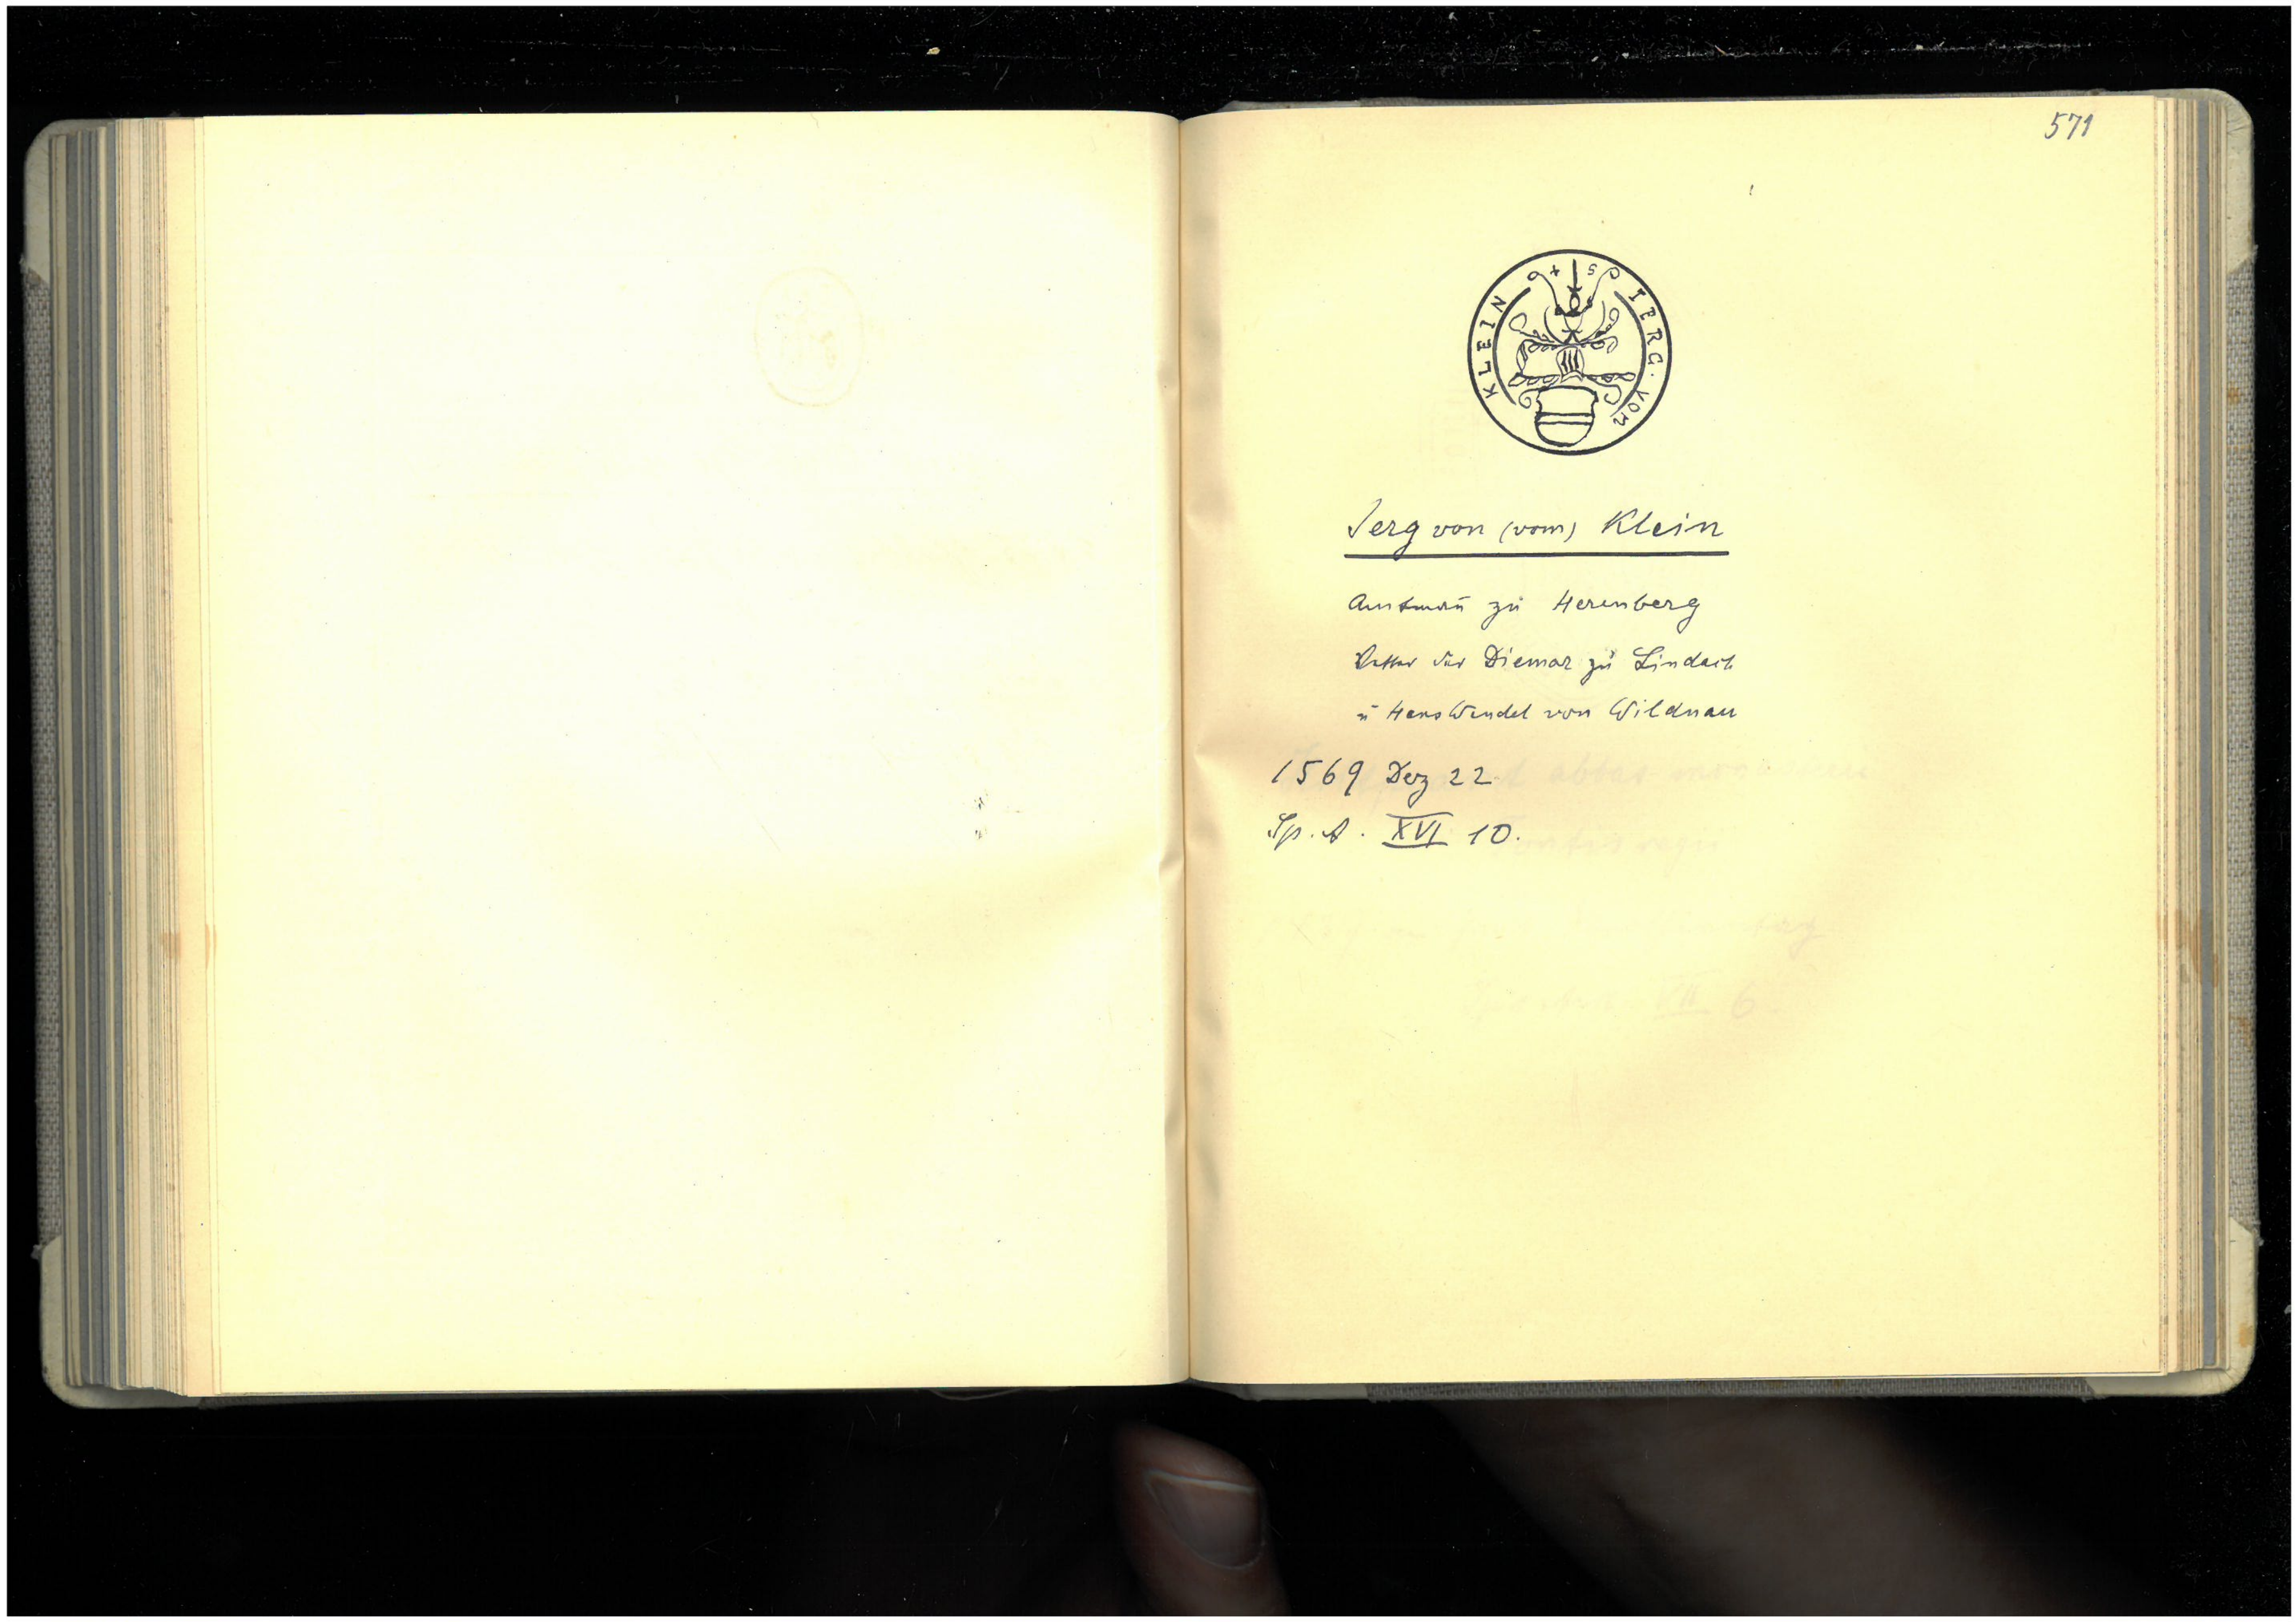 571
S IERG · VON KLEIN 4
Jerg von (vom) Klein
Amtmañ zu Herenberg
Vetter der Diemar zu Lindach
u Hans Wendel von Wildnau
1569 Dez 22.
Sp. A. XVI 10.